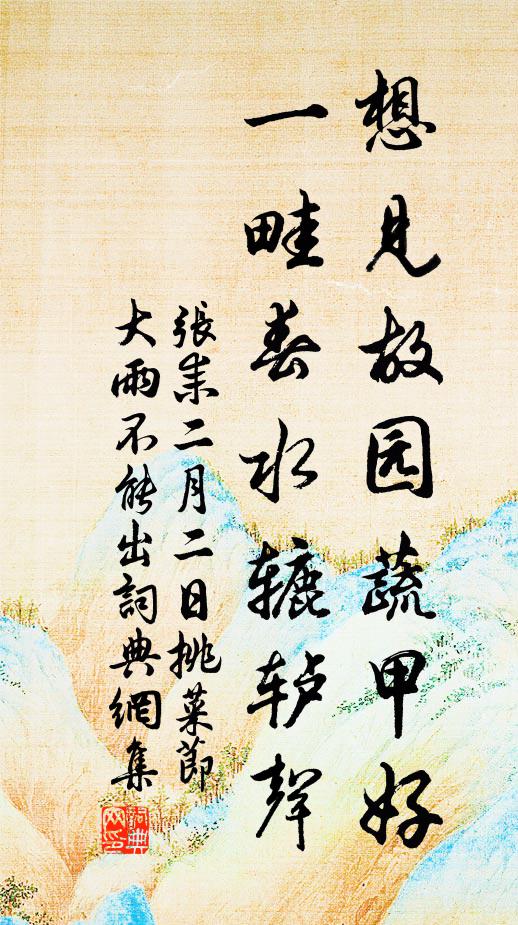 想见故园蔬甲好
一畦春水辘轳聲
張耒二月二日挑菜節
大雨不能出詞典網集
詞典
网印